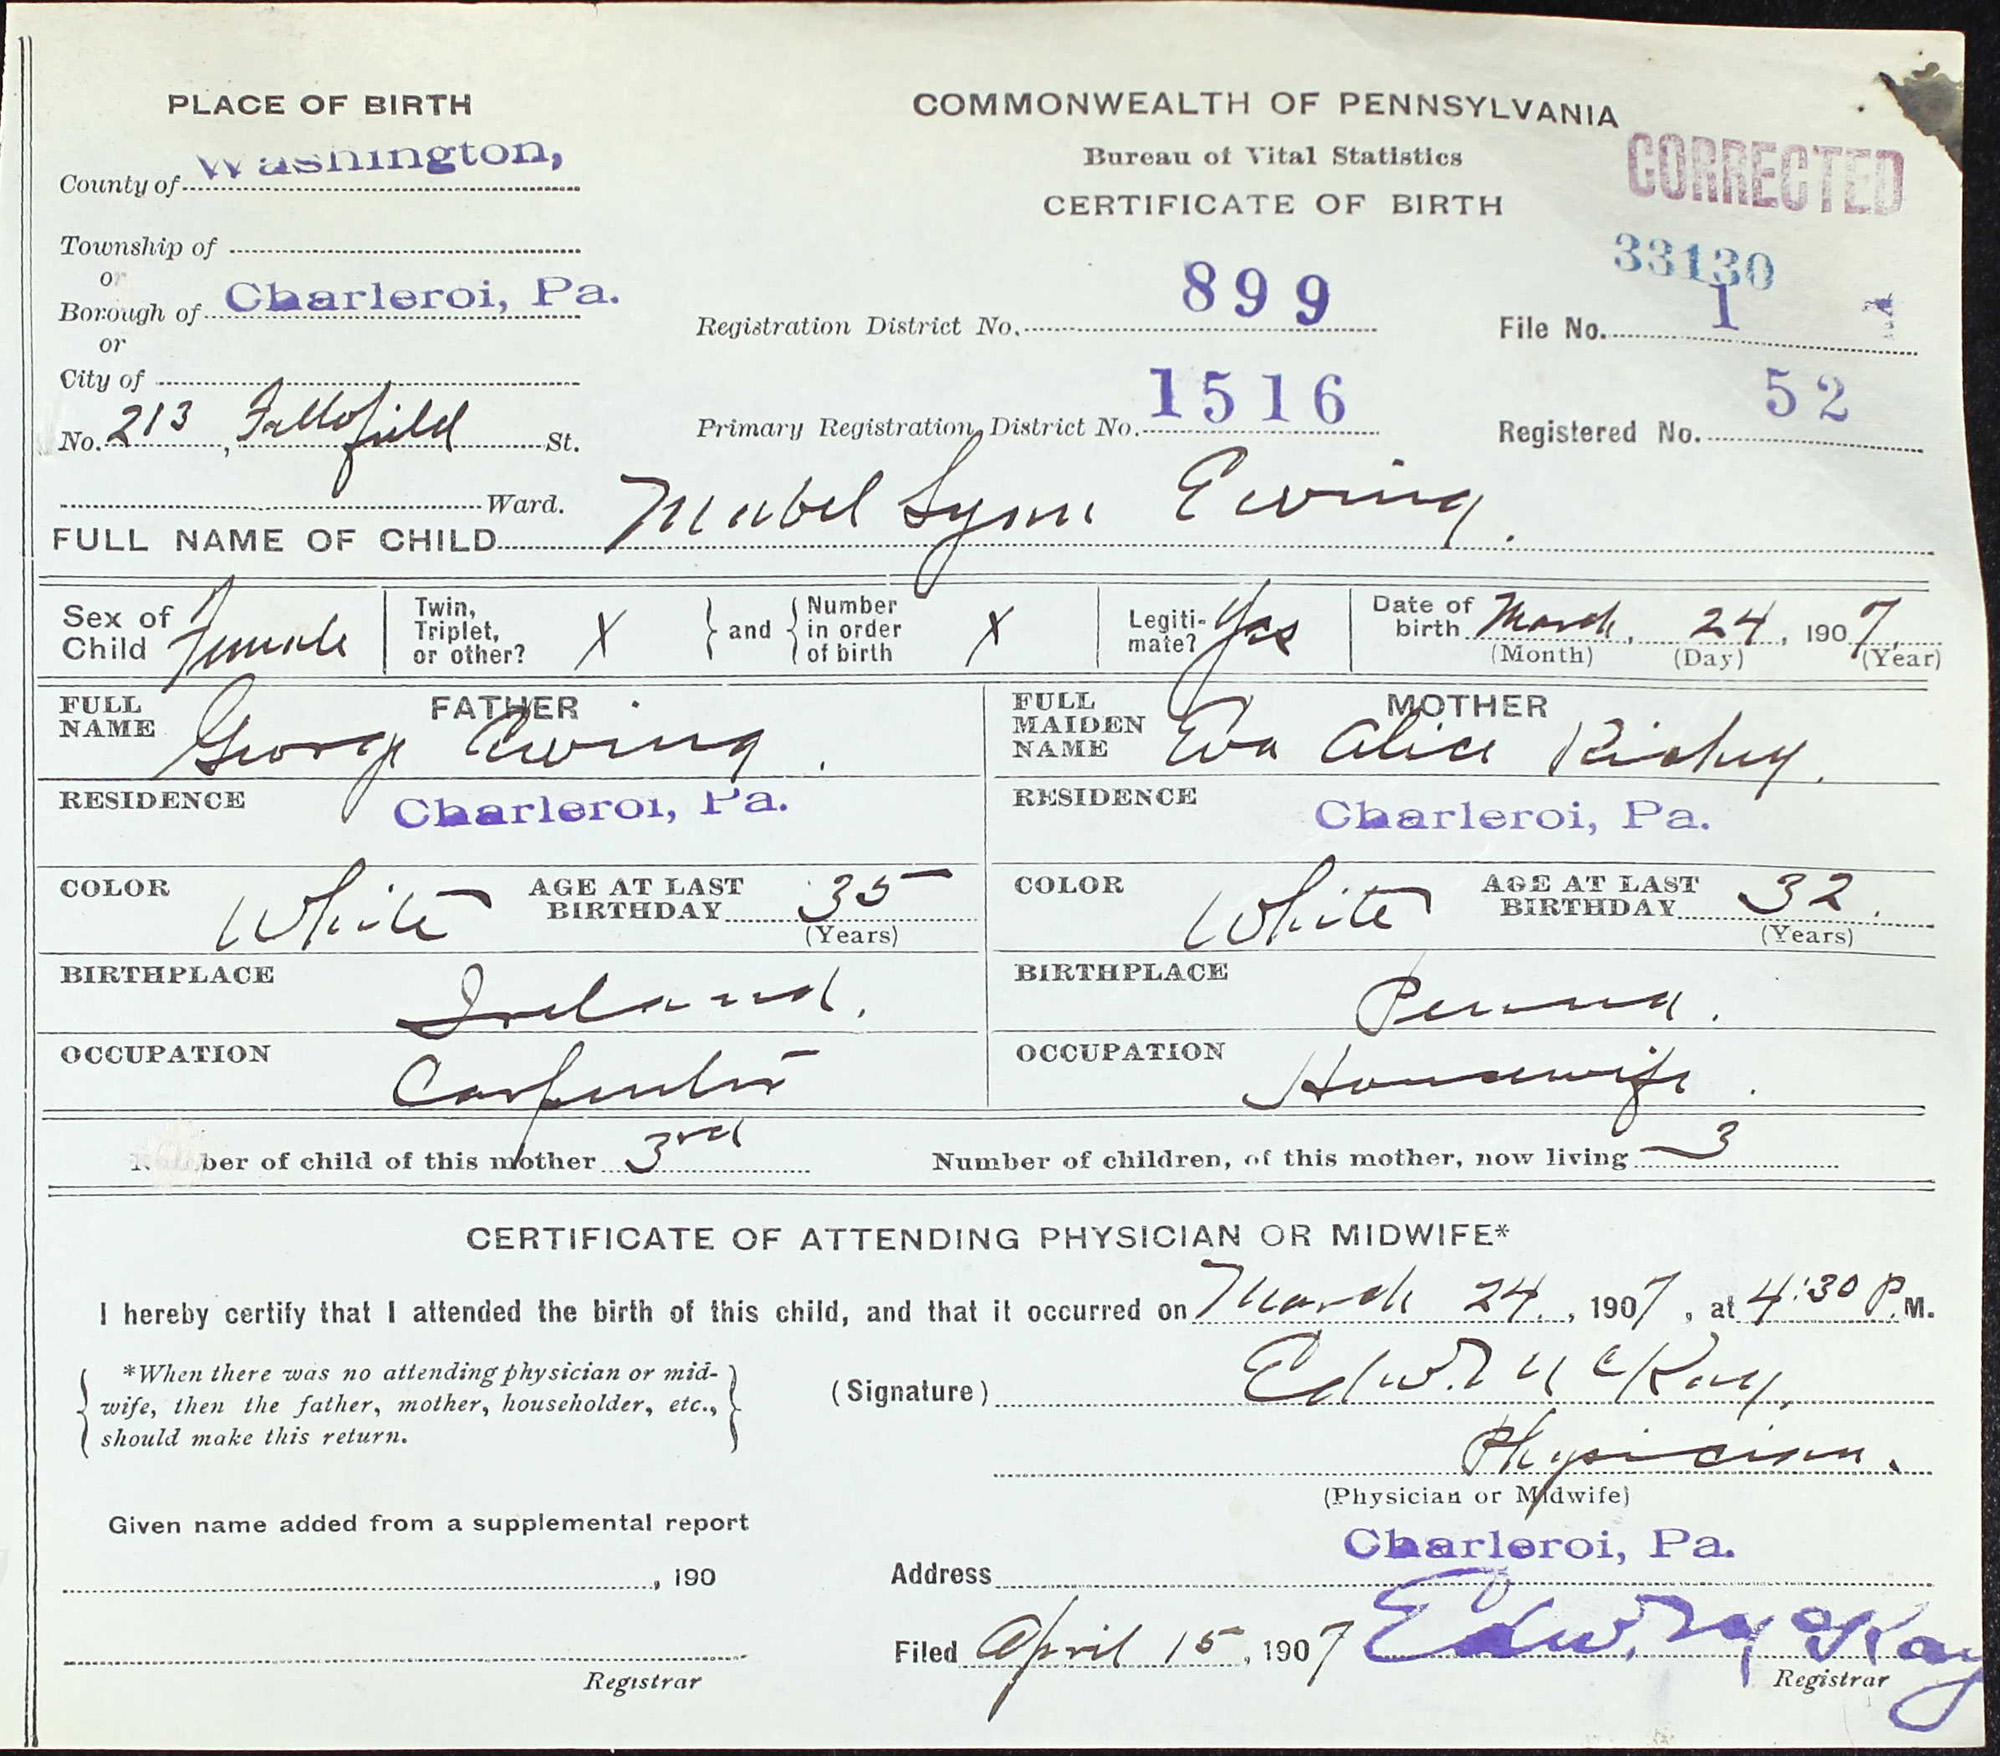 PLACE OF BIRTH
County of Washington,
Township of
or
Borough of Charleroi, Pa.
or
City of
No. 213, Fallofield St.
Ward.
COMMONWEALTH OF PENNSYLVANIA
Bureau of Vital Statistics
CERTIFICATE OF BIRTH
CORRECTED
33130
Registration District No. 899
File No. 1 1
Primary Registration District No. 1516
Registered No. 52
FULL NAME OF CHILD Mabel Lynn Ewing.
Sex of Child Female
Twin, Triplet, or other? X
and
Number in order of birth X
Legiti-mate? Yes
Date of birth March, 24, 1907
(Month) (Day) (Year)
FATHER
FULL NAME George Ewing.
RESIDENCE Charleroi, Pa.
COLOR White
AGE AT LAST BIRTHDAY 35
(Years)
BIRTHPLACE Ireland.
OCCUPATION Carpenter
MOTHER
FULL MAIDEN NAME Eva Alice Richey.
RESIDENCE Charleroi, Pa.
COLOR White
AGE AT LAST BIRTHDAY 32.
(Years)
BIRTHPLACE Penna.
OCCUPATION Housewife.
Number of child of this mother 3rd
Number of children, of this mother, now living 3
CERTIFICATE OF ATTENDING PHYSICIAN OR MIDWIFE*
I hereby certify that I attended the birth of this child, and that it occurred on March 24, 1907, at 4:30 P.M.
*When there was no attending physician or mid-
wife, then the father, mother, householder, etc.,
should make this return.
(Signature) Edw. M cKay,
Physician.
(Physician or Midwife)
Given name added from a supplemental report
, 190
Registrar
Address Charleroi, Pa.
Filed April 15, 1907 Edw. M cKay
Registrar